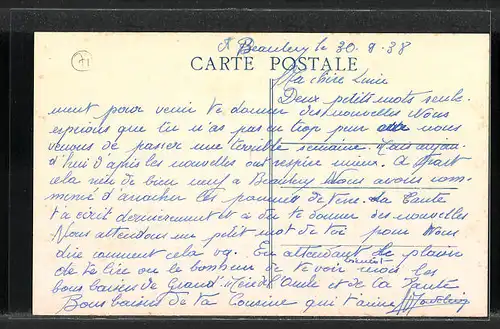 Beaubery le 30-9-38
CARTE POSTALE
Ma chère Lucie
Deux petits mots seule-
ment pour venir te donner des nouvelles Nous
espérons que tu n'as pas eu trop peur nous
venons de passer une terrible semaine. Mais aujour
d'hui d'après les nouvelles ont respire mieux. A part
cela rien de bien neuf à Beaubery Nous avons com-
mencé d'arracher les pommes de terre. La Tante
t'a écrit dernièrement et a dû te donner des nouvelles
Nous attendons un petit mot de toi pour nous
dire comment cela va. En attendant le plaisir
de te lire ou le bonheur de te voir bientôt les
bons baisers de Grand-Mère de l'Oncle et de la Tante
Bons baisers de ta Cousine qui t'aime